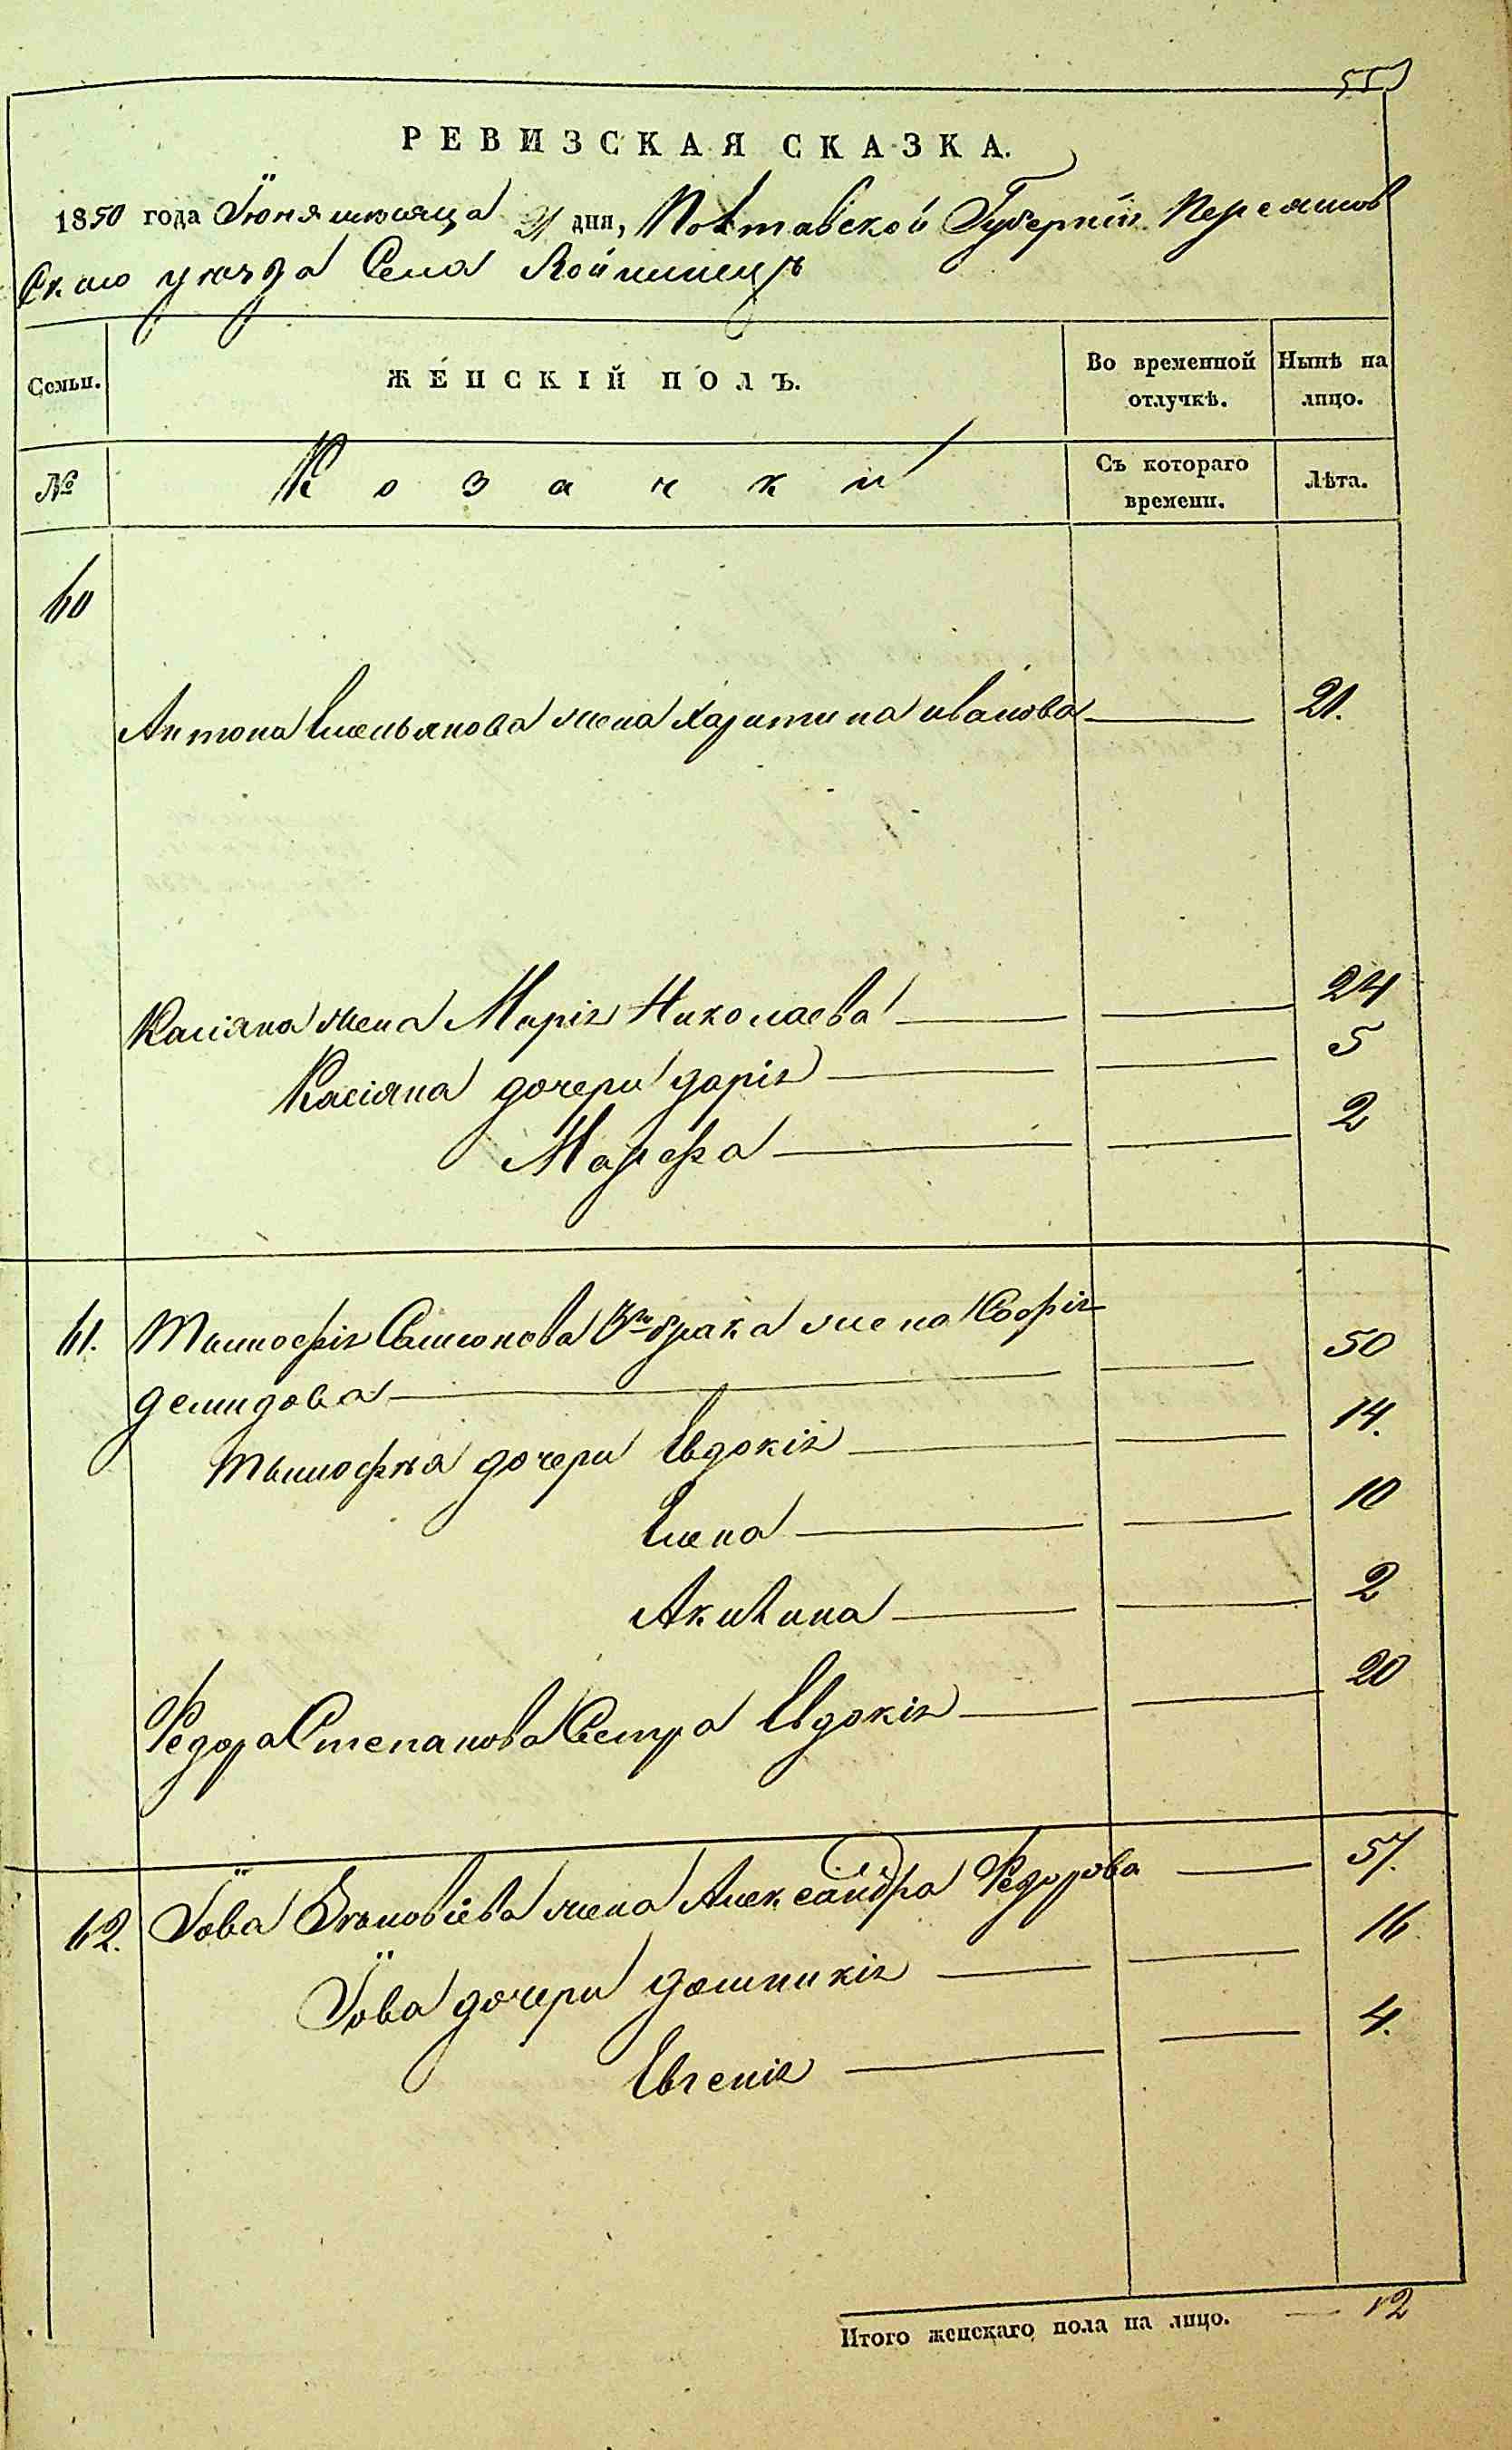 55
РЕВИЗСКАЯ СКАЗКА.
1850 года Іюня мѣсяца 21 дня, Полтавской Губерніи Переяслов
скаго уѣзда Села Войтовецъ
Семьи. ЖЕНСКІЙ ПОЛЪ. Во временной отлучкѣ. Нынѣ на лицо.
№ Козачки Съ котораго времени. Лѣта.
60
Антона Емельянова жена Харитина иванова 21.
Касіяна жена Марія Николаева 24
Касіяна дочери дарія 5
Марфа 2
61. Тимофія Самсонова 3го брака жена Софія
демидова 50
Тимофѣя дочери Евдокія 14.
Елена 10
Акилина 2
Федора Степанова Сестра Евдокія 20
62. Іова жена Александра Федорова 57.
Іова дочери домникія 16
Евгенія 4.
Итого женскаго пола на лицо. 12